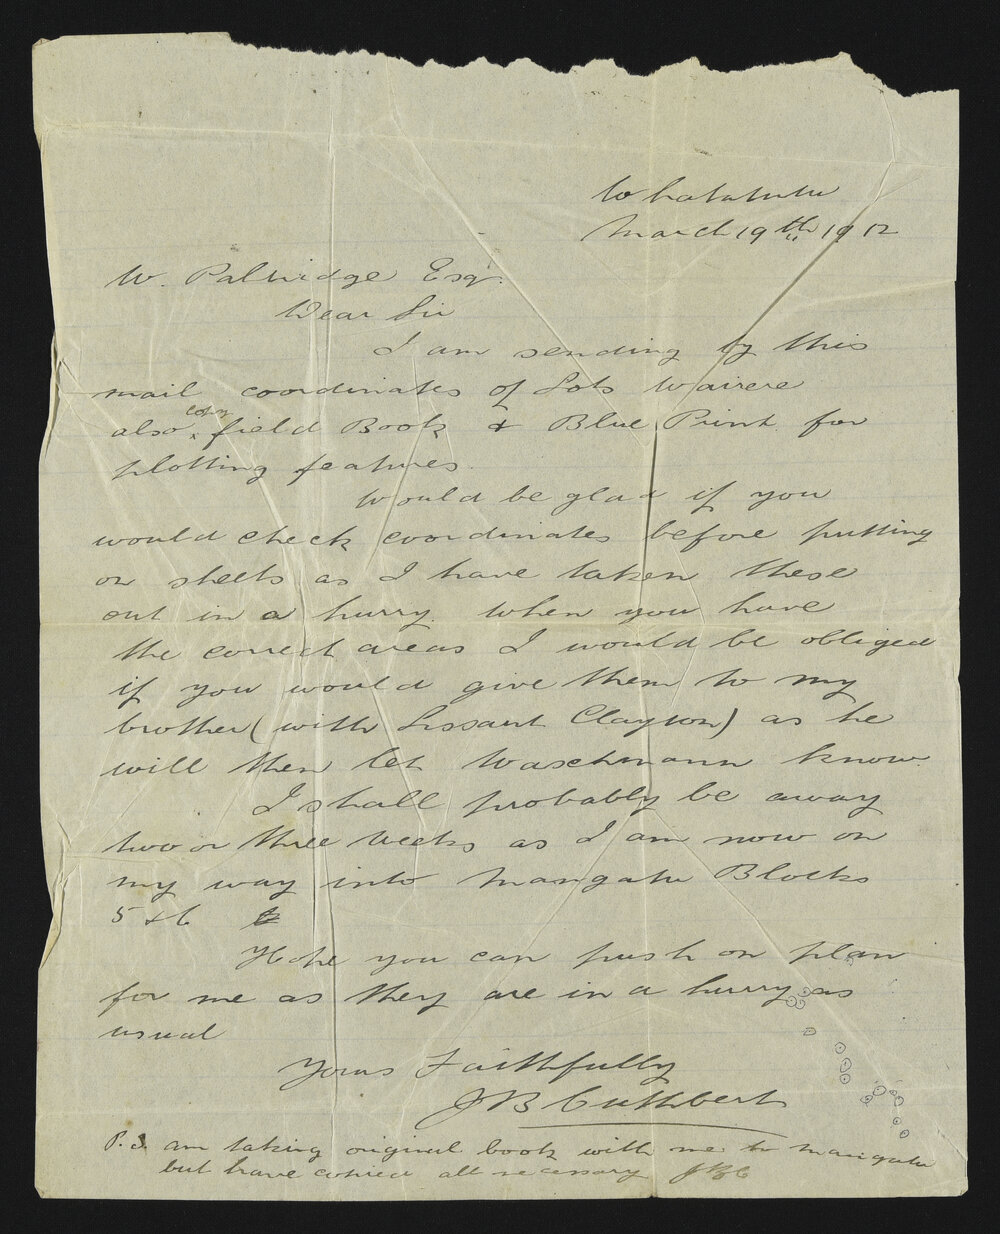 Whatatutu
March 19th 1912
W. Paltridge Esqr.
Dear Sir
I am sending by this
mail coordinates of Lots Wairere
also copy field Book & Blue Print for
plotting features.
Would be glad if you
would check coordinates before putting
on sheets as I have taken these
out in a hurry. When you have
the correct areas I would be obliged
if you would give them to my
brother (with Lissant Clayton) as he
will then let Waschmann know.
I shall probably be away
two or three weeks as I am now on
my way into Mangatu Blocks
5 & 6
Hope you can push on plan
for me as they are in a hurry as
usual
Yours Faithfully
J B Cuthbert
P.S. am taking original book with me to Mangatu
but have copied all necessary JBC